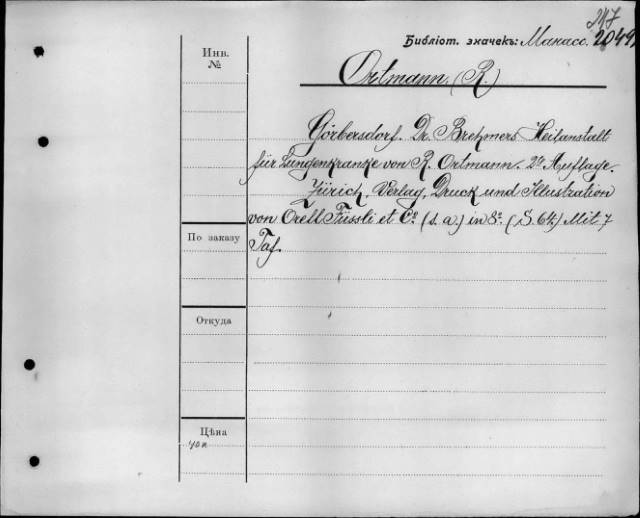 247
Библіот. значекъ: Манасс. 2049
Инв.
№
Ortmann, (R.)
Görbersdorf. Dr. Brehmers Heilanstalt
für Lungenkranke von R. Ortmann. 2te Auflage.
Zürich. Verlag, Druck und Illustration
von Orell Füssli et Co. (s. a.) in 8o. (S. 64.) Mit 7
Taf.
По заказу
Откуда
Цѣна
40 к